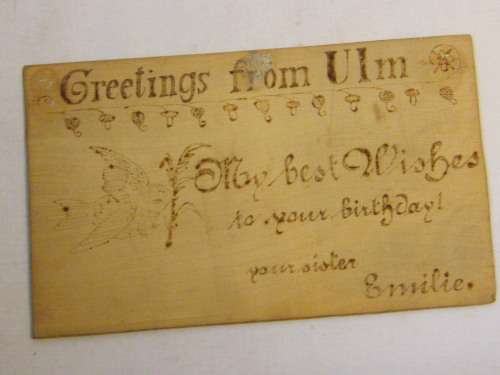 Greetings from Ulm
My best Wishes
to your birthday!
your sister
Emilie.